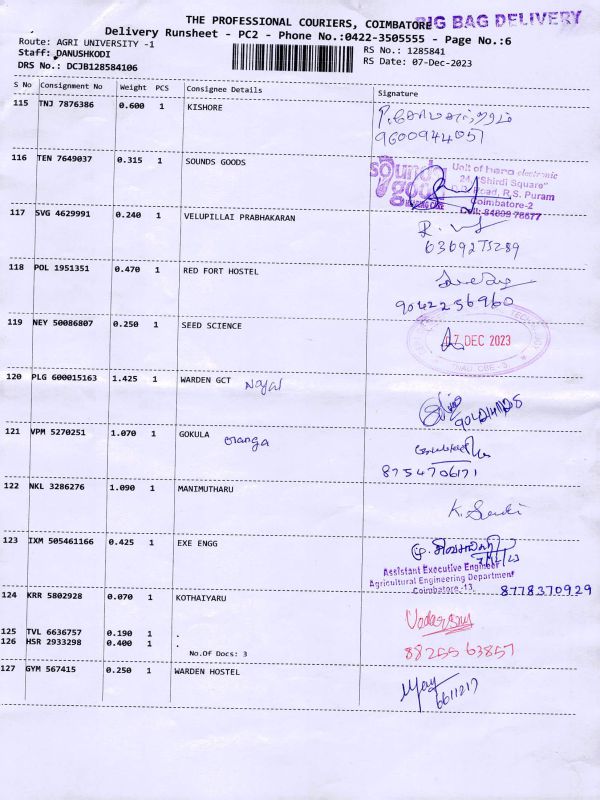 THE PROFESSIONAL COURIERS, COIMBATORE BIG BAG DELIVERY
Delivery Runsheet - PC2 - Phone No.:0422-3505555 - Page No.:6
Route: AGRI UNIVERSITY -1 RS No.: 1285841
Staff: DANUSHKODI RS Date: 07-Dec-2023
DRS No.: DCJB128584106
S No Consignment No Weight PCS Consignee Details Signature
115 TNJ 7876386 0.600 1 KISHORE
9600944057
116 TEN 7649037 0.315 1 SOUNDS GOODS
Sounds good Unit of hara electronic
24, "Shirdi Square"
Road, R.S. Puram
Coimbatore-2
117 SVG 4629991 0.240 1 VELUPILLAI PRABHAKARAN
6369275289
118 POL 1951351 0.470 1 RED FORT HOSTEL
9042256960
119 NEY 50086807 0.250 1 SEED SCIENCE
07 DEC 2023
120 PLG 600015163 1.425 1 WARDEN GCT
121 VPM 5270251 1.070 1 GOKULA
8754706171
122 NKL 3286276 1.090 1 MANIMUTHARU
123 IXM 505461166 0.425 1 EXE ENGG
Assistant Executive Engineer
Agricultural Engineering Department
Coimbatore-13 8778370929
124 KRR 5802928 0.070 1 KOTHAIYARU
125 TVL 6636757 0.190 1 .
126 HSR 2933298 0.400 1 .
No.Of Docs: 3
88255 63857
127 GYM 567415 0.250 1 WARDEN HOSTEL